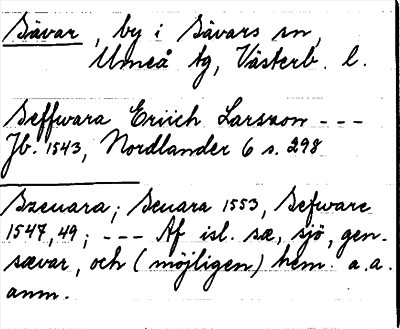 Sävar, by i Sävars sn,
Umeå tg, Västerb. l.
Seffwara Eriich Larsson ---
Jb. 1543, Nordlander 6 s. 298
Szeuara; Seuara 1553, Sefware
1547, 49; --- Af isl. sæ, sjö, gen.
sævar, och (möjligen) hem. a.a.
anm.